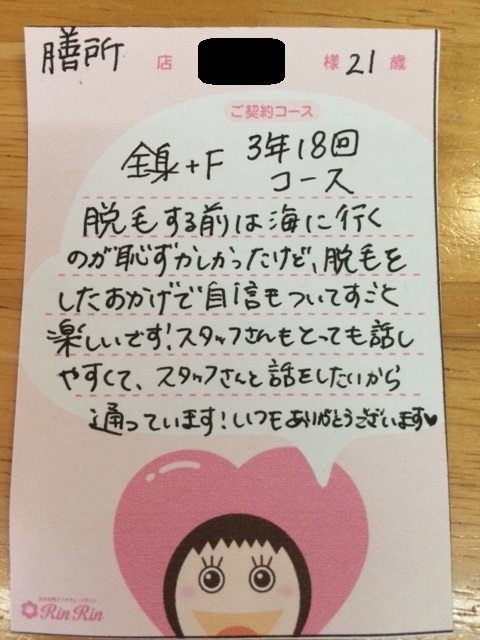 膳所 店 様 21 歳
ご契約コース
全身+F 3年18回
コース
脱毛する前は海に行く
のが恥ずかしかったけど、脱毛を
したおかげで自信もついてすごく
楽しいです!スタッフさんもとっても話し
やすくて、スタッフさんと話をしたいから
通っています!いつもありがとうございます♥
RinRin